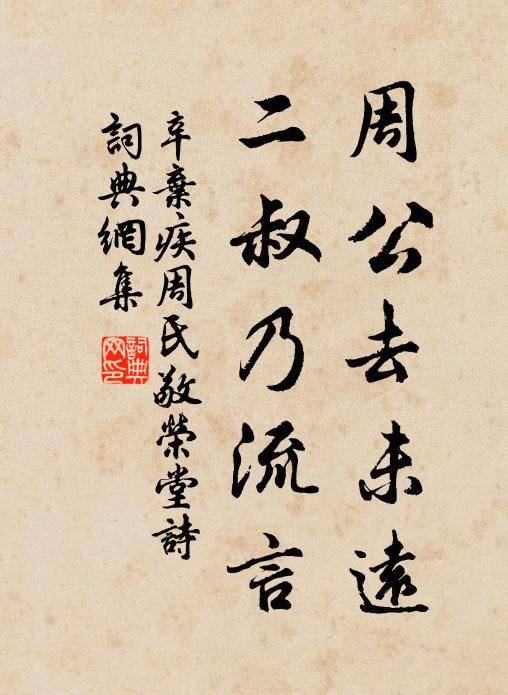 周公去未遠
二叔乃流言
辛棄疾周氏敬榮堂詩
詞典網集
詞典網印